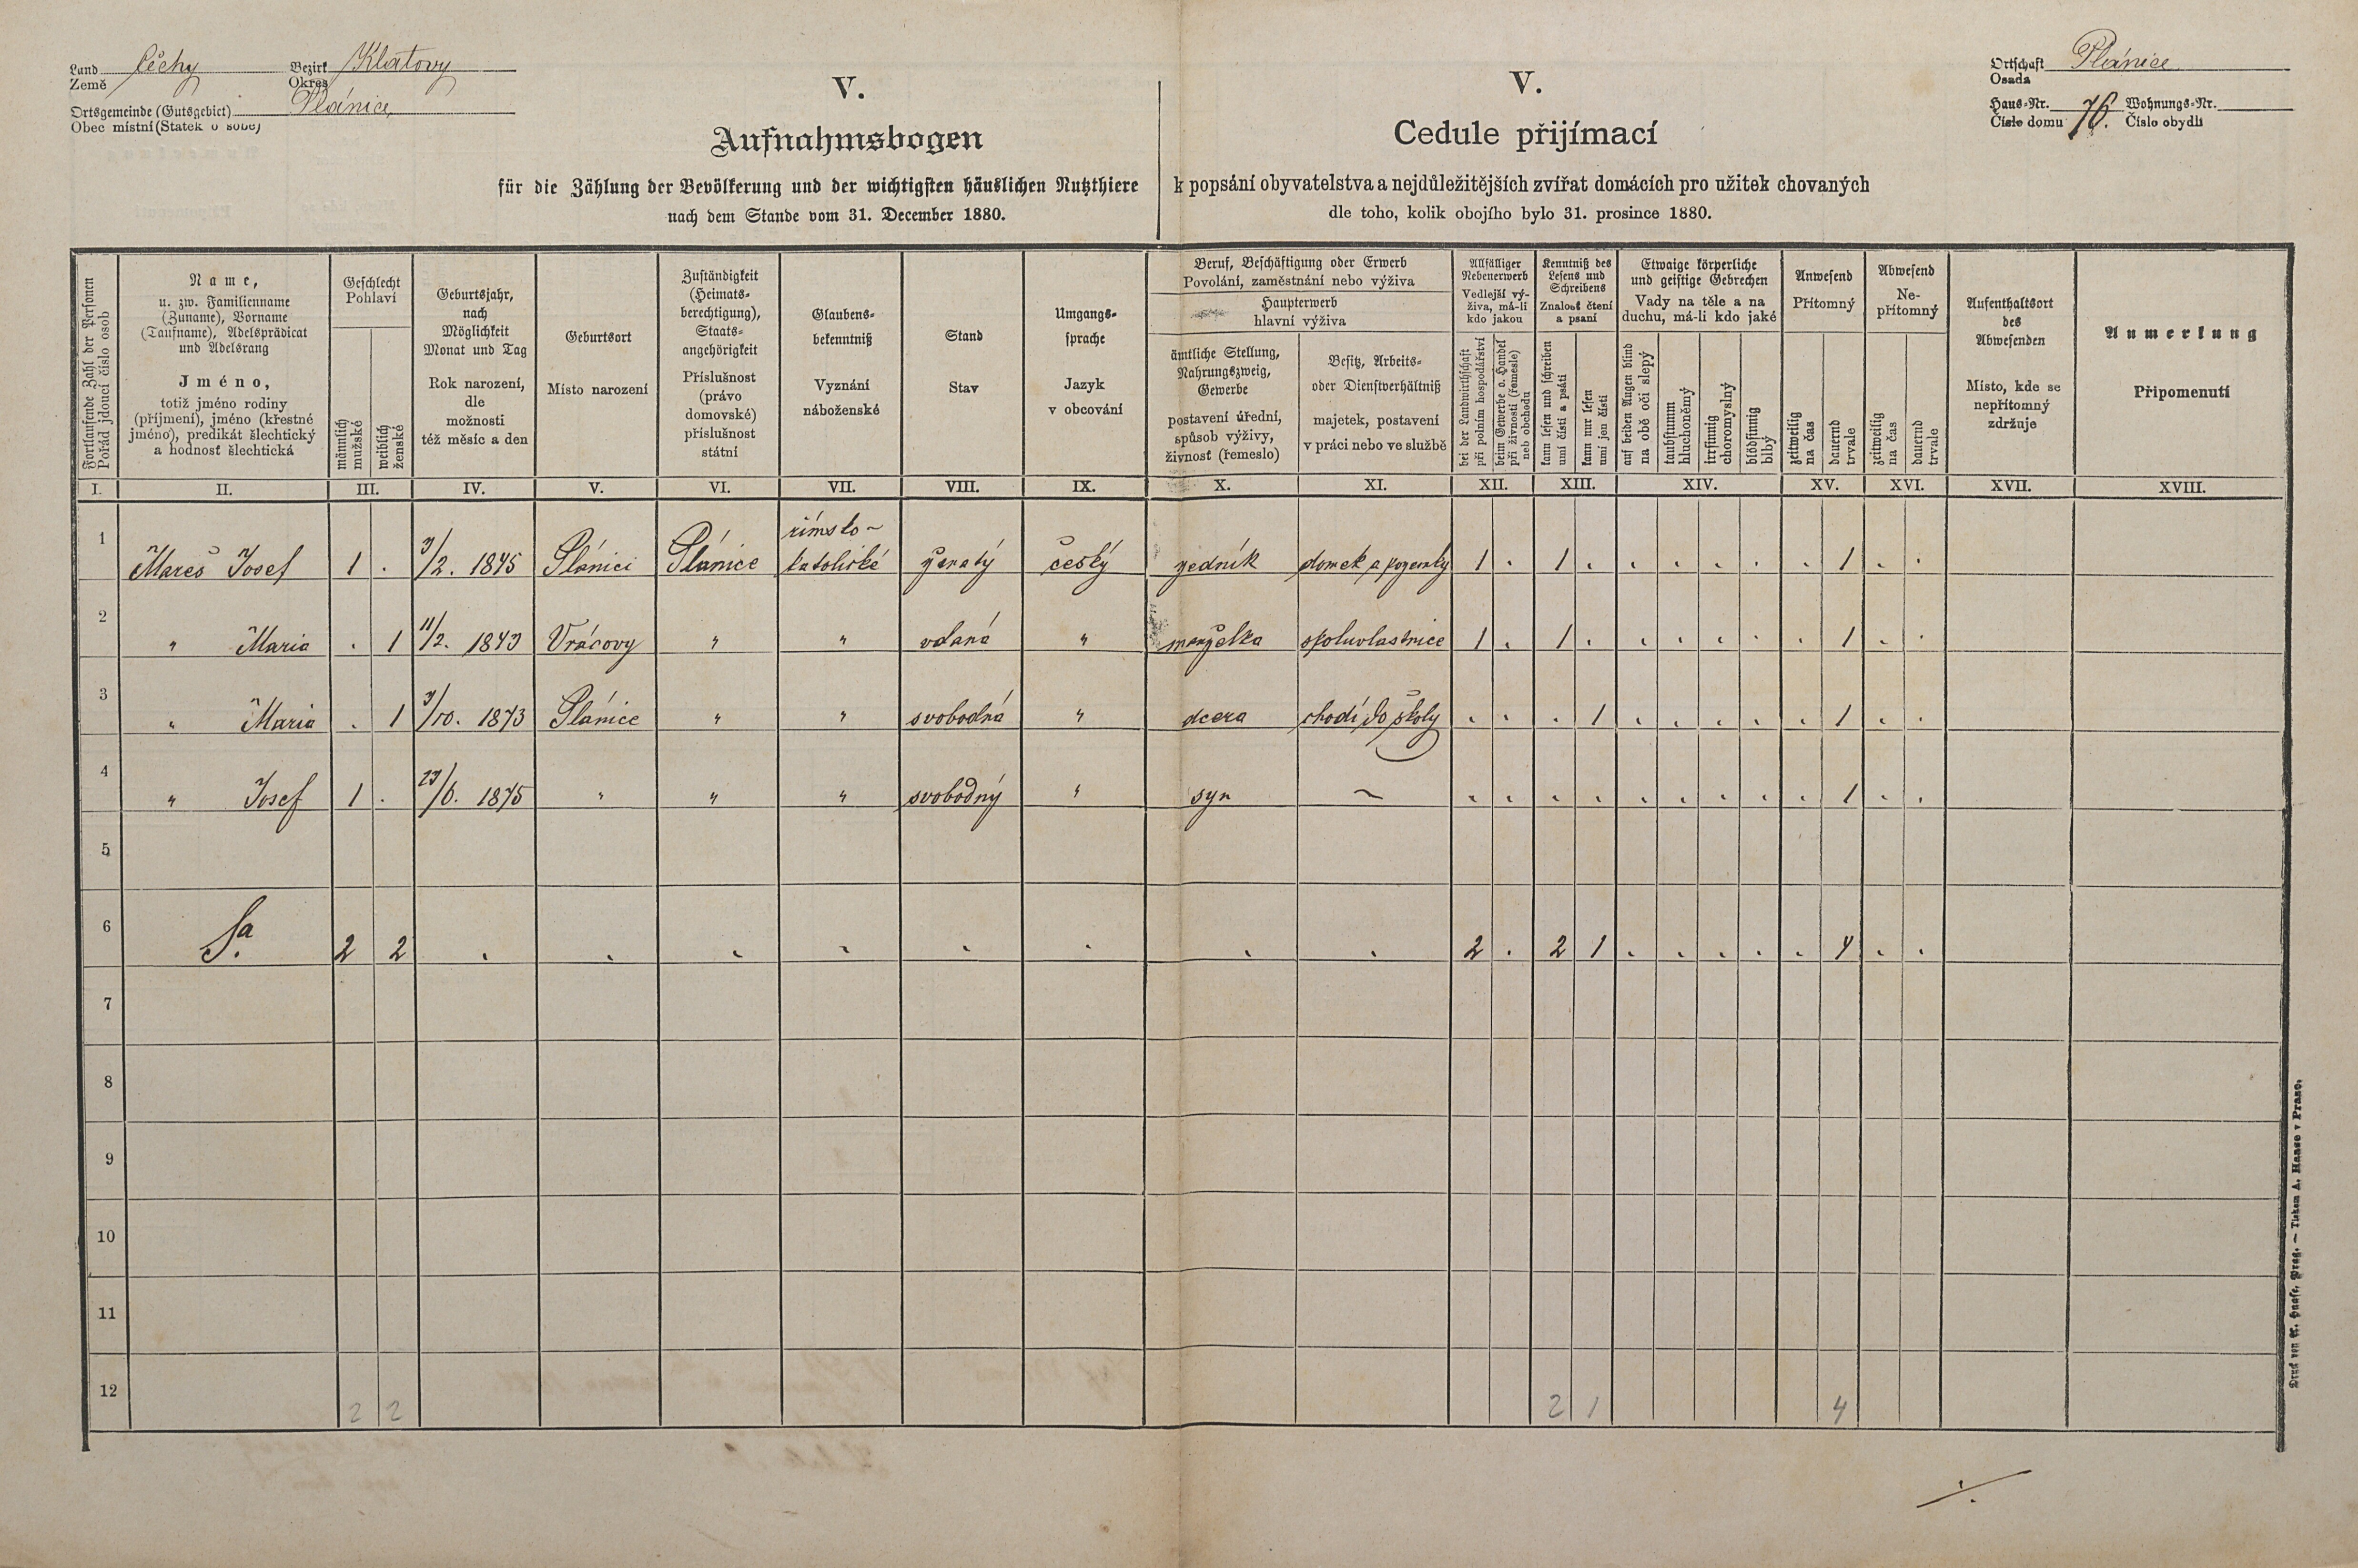 Land Čechy Bezirk Klatovy
Země Okres
Ortsgemeinde (Gutsgebiet) Plánice,
Obec místní (Statek o sobě)
V.
Aufnahmsbogen
für die Zählung der Bevölkerung und der wichtigsten häuslichen Nutzthiere
nach dem Stande vom 31. December 1880.
V.
Cedule přijímací
k popsání obyvatelstva a nejdůležitějších zvířat domácích pro užitek chovaných
dle toho, kolik obojího bylo 31. prosince 1880.
Ortschaft Plánice
Osada
Haus-Nr. 76. Wohnungs-Nr.
Číslo domu Číslo obydlí
Fortlaufende Zahl der Personen
Pořád jdoucí číslo osob
Name,
u. zw. Familienname
(Zuname), Vorname
(Taufname), Adelsprädicat
und Adelsrang
Jméno,
totiž jméno rodiny
(příjmení), jméno (křestné
jméno), predikát šlechtický
a hodnosť šlechtická
Geschlecht
Pohlaví
männlich
mužské
weiblich
ženské
Geburtsjahr,
nach
Möglichkeit
Monat und Tag
Rok narození,
dle
možnosti
též měsíc a den
Geburtsort
Místo narození
Zuständigkeit
(Heimats-
berechtigung),
Staats-
angehörigkeit
Příslušnost
(právo
domovské)
příslušnost
státní
Glaubens-
bekenntniß
Vyznání
náboženské
Stand
Stav
Umgangs-
sprache
Jazyk
v obcování
Beruf, Beschäftigung oder Erwerb
Povolání, zaměstnání nebo výživa
Haupterwerb
hlavní výživa
ämtliche Stellung,
Nahrungszweig,
Gewerbe
postavení úřední,
spůsob výživy,
živnosť (řemeslo)
Besitz, Arbeits-
oder Dienstverhältniß
majetek, postavení
v práci nebo ve službě
Allfälliger
Nebenerwerb
Vedlejší vý-
živa, má-li
kdo jakou
bei der Landwirthschaft
při polním hospodářství
beim Gewerbe o. Handel
při živnosti (řemesle)
nebo obchodu
Kenntniß des
Lesens und
Schreibens
Znalosť čtení
a psaní
kann lesen und schreiben
umí čísti a psáti
kann nur lesen
umí jen čísti
Etwaige körperliche
und geistige Gebrechen
Vady na těle a na
duchu, má-li kdo jaké
auf beiden Augen blind
na obě oči slepý
taubstumm
hluchoněmý
irrsinnig
choromyslný
blödsinnig
blbý
Anwesend
Přítomný
zeitweilig
na čas
dauernd
trvale
Abwesend
Ne-
přítomný
zeitweilig
na čas
dauernd
trvale
Aufenthaltsort
des
Abwesenden
Místo, kde se
nepřítomný
zdržuje
Anmerkung
Připomenutí
I. II. III. IV. V. VI. VII. VIII. IX. X. XI. XII. XIII. XIV. XV. XVI. XVII. XVIII.
římsko-
1 Mareš Josef 1 . 3/2. 1845 Plánici Plánice katolické ženatý český zedník domek a pozemky 1 . 1 . . . . . . 1 . .
2 " Maria . 1 11/2. 1843 Vrácovy " " vdaná " manželka spoluvlastnice 1 . 1 . . . . . . 1 . .
3 " Maria . 1 3/10. 1873 Plánice " " svobodná " dcera chodí do školy . . . 1 . . . . . 1 . .
4 " Josef 1 . 23/6. 1875 " " " svobodný " syn ~ . . . . . . . . . 1 . .
5
6 Sa. 2 2 . . . . . . . . 2 . 2 1 . . . . . 4 . .
7
8
9
10
11
12 2 2 2 1 4
Druck von A. Haase, Prag. — Tiskem A. Haase v Praze.